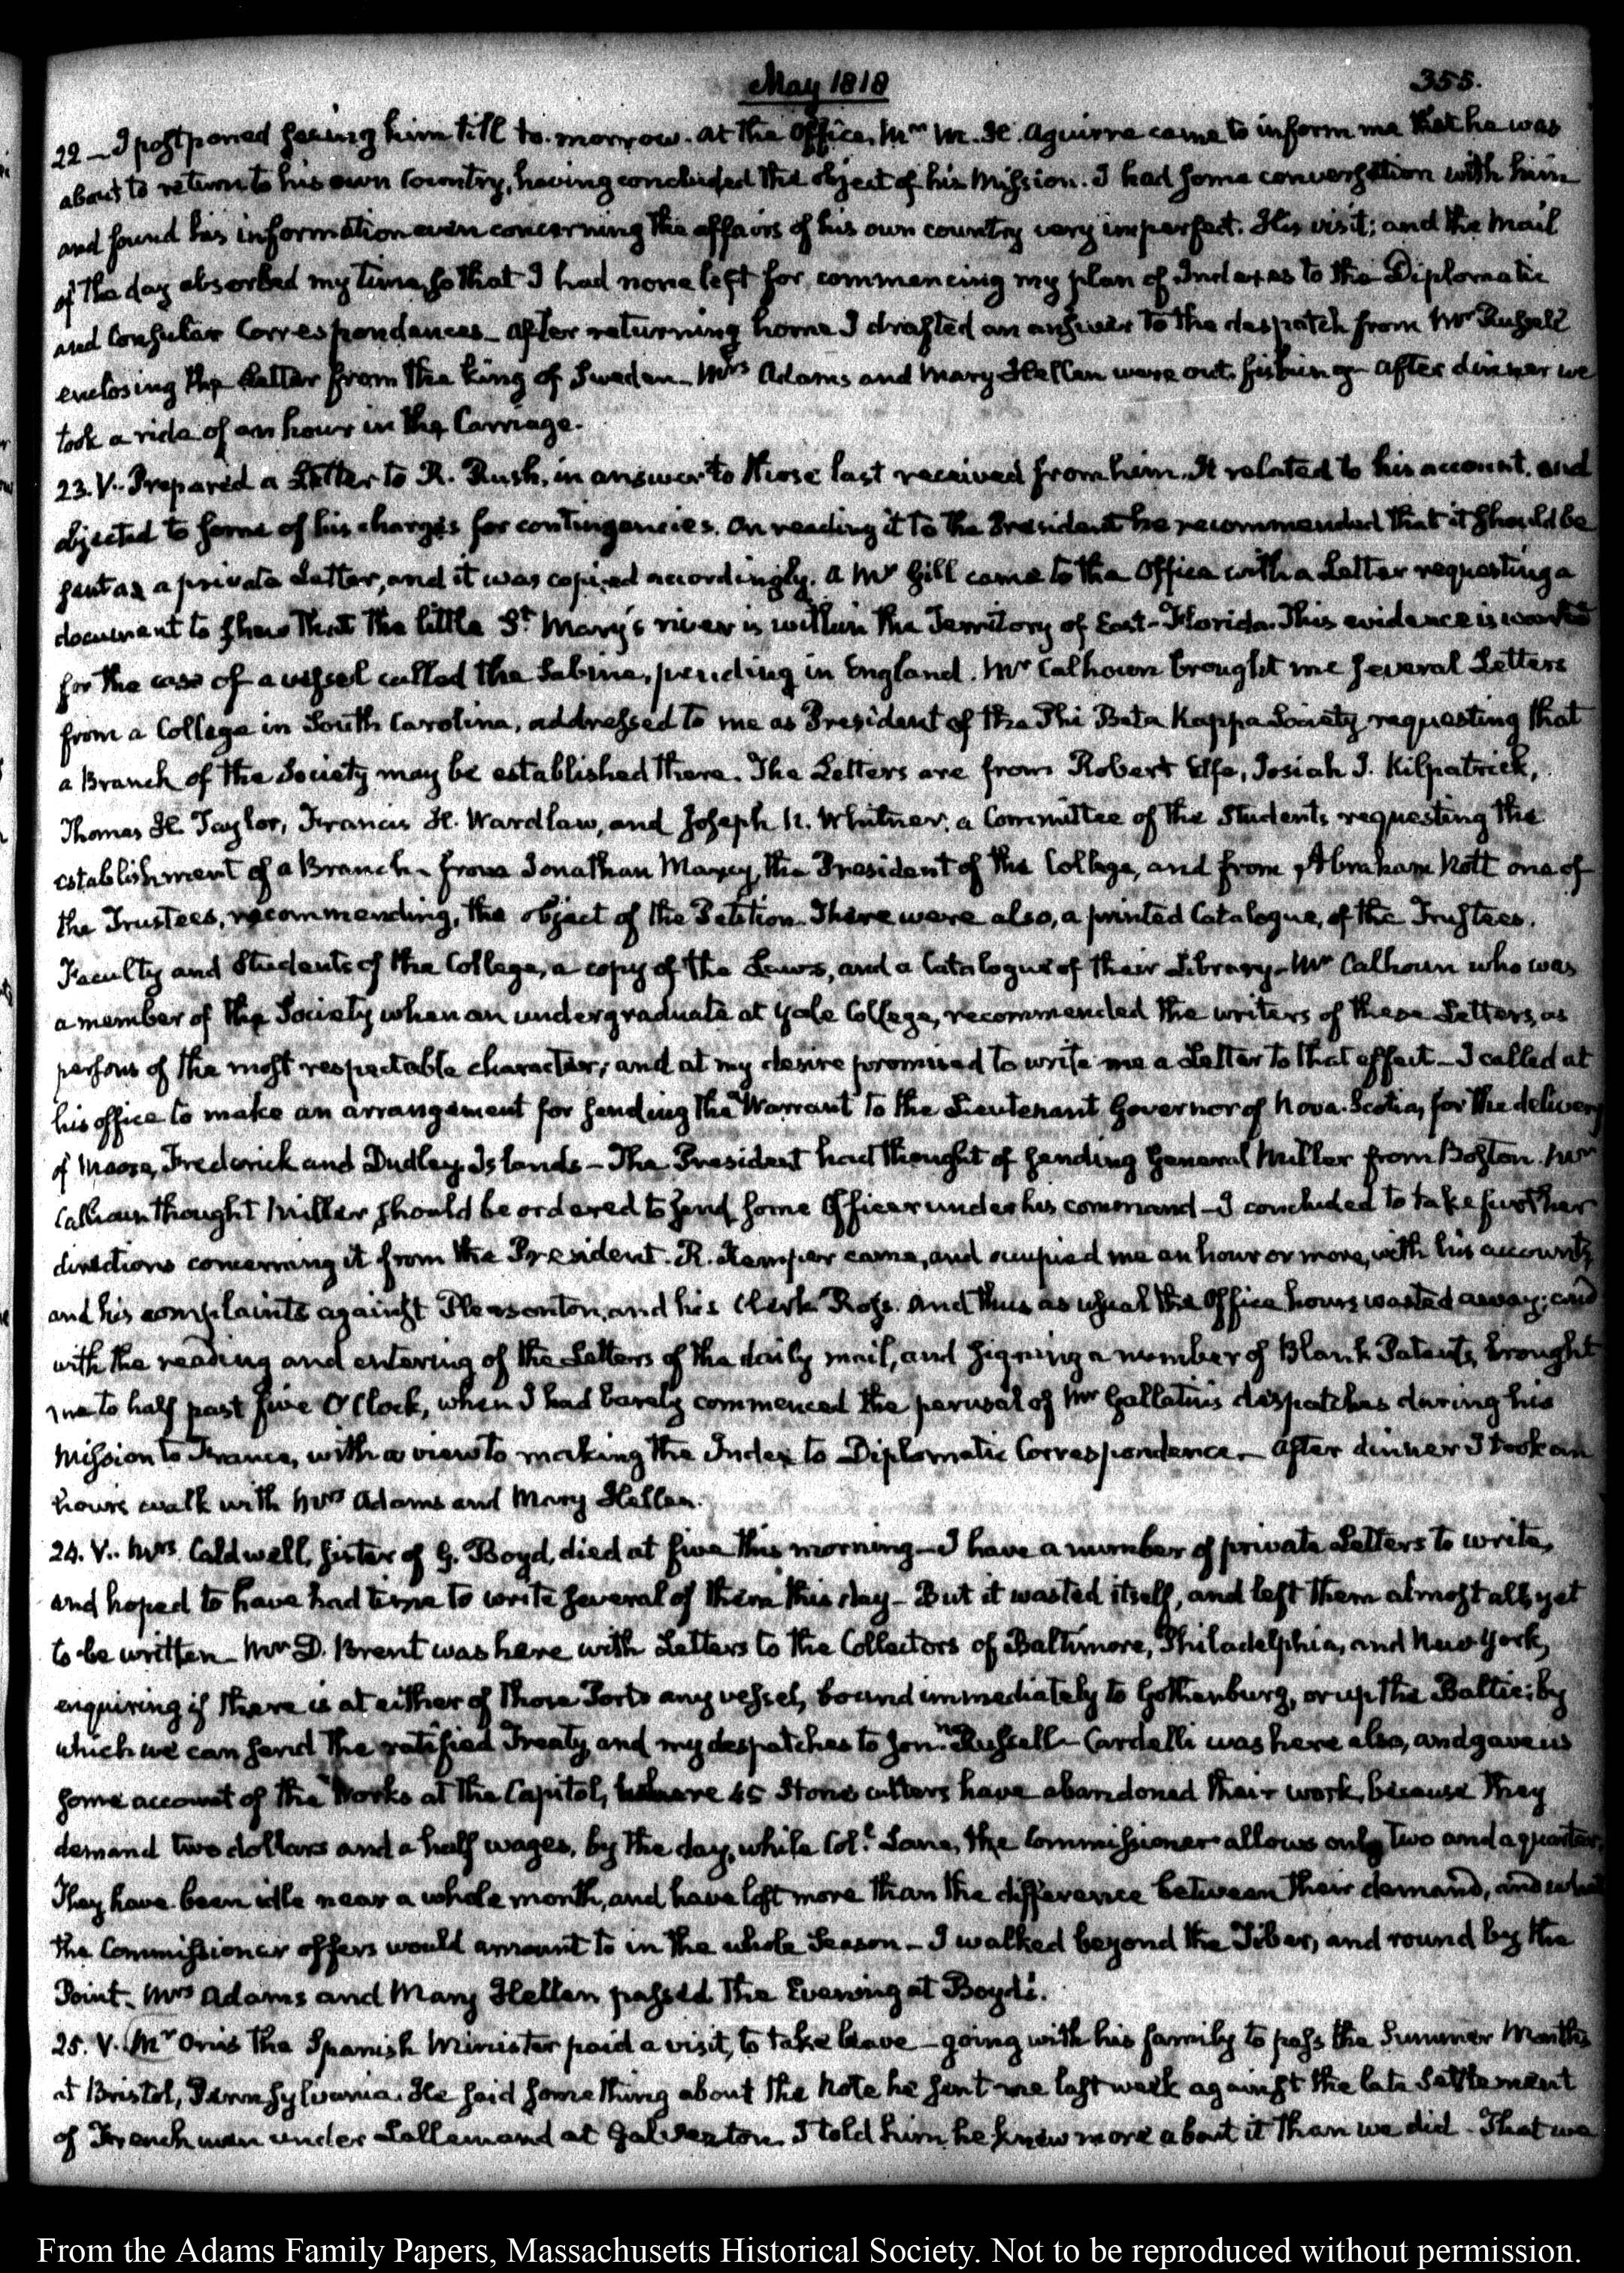 May 1818
355.
22 – I postponed seeing him till to-morrow. At the Office, Mr M. H. Aguirre came to inform me that he was
about to return to his own Country, having concluded the object of his Mission. I had some conversation with him
and found his information even concerning the affairs of his own country very imperfect. His visit; and the Mail
of the day absorbed my time, so that I had none left for commencing my plan of Indexes to the Diplomatic
and Consular Correspondences – After returning home I drafted an answer to the despatch from Mr Russell
enclosing the Letter from the King of Sweden – Mrs Adams and Mary Hellen were out fishing – After dinner we
took a ride of an hour in the Carriage.
23. V.. Prepared a Letter to R. Rush, in answer to those last received from him. It related to his account, and
objected to some of his charges for contingencies. On reading it to the President he recommended that it should be
sent as a private Letter, and it was copied accordingly. A Mr Gill came to the Office with a Letter requesting a
document to shew that the little St Mary's river is within the Territory of East-Florida. This evidence is wanted
for the case of a vessel called the Sabine, pending in England. Mr Calhoun brought me several Letters
from a College in South Carolina, addressed to me as President of the Phi Beta Kappa Society requesting that
a Branch of the Society may be established there. The Letters are from Robert Elfe, Josiah J. Kilpatrick,
Thomas H. Taylor, Francis H. Wardlaw, and Joseph N. Whitner, a Committee of the Students requesting the
establishment of a Branch – from Jonathan Maxcy, the President of the College, and from Abraham Nott one of
the Trustees, recommending, the object of the Petition – There were also, a printed Catalogue, of the Trustees,
Faculty and Students of the College, a copy of the Laws, and a Catalogue of their Library – Mr Calhoun who was
a member of the Society when an undergraduate at Yale College, recommended the writers of these Letters, as
persons of the most respectable character; and at my desire promised to write me a Letter to that effect – I called at
his office to make an arrangement for sending the Warrant to the Lieutenant Governor of Nova-Scotia, for the delivery
of Moose, Frederick and Dudley Islands – The President had thought of sending General Miller from Boston. Mr
Calhoun thought Miller should be ordered to send some Officer under his command – I concluded to take further
directions concerning it from the President. R. Kemper came, and occupied me an hour or more, with his accounts,
and his complaints against Pleasonton, and his Clerk Ross. And thus as usual the Office hours wasted away; and
with the reading and entering of the Letters of the daily mail, and signing a number of Blank Patents, brought
me to half past five O'Clock, when I had barely commenced the perusal of Mr Gallatin's despatches during his
Mission to France, with a view to making the Index to Diplomatic Correspondence – After dinner I took an
hours walk with Mrs Adams and Mary Hellen.
24. V.. Mrs Caldwell, sister of G. Boyd, died at five this morning – I have a number of private Letters to write,
and hoped to have had time to write several of them this day – But it wasted itself, and left them almost all, yet
to be written – Mr D. Brent was here with Letters to the Collectors of Baltimore, Philadelphia, and New-York,
enquiring if there is at either of those Ports any vessel, bound immediately to Gothenburg, or up the Baltic; by
which we can send the ratified Treaty, and my despatches to Jonn Russell – Cardelli was here also, and gave us
some account of the Works at the Capitol, where 45 Stone cutters have abandoned their work, because they
demand two dollars and a half wages, by the day, while Coll Lane, the Commissioner allows only two and a quarter.
They have been idle near a whole month, and have lost more than the difference between their demand, and what
the Commissioner offers would amount to in the whole Season – I walked beyond the Tiber, and round by the
Point. Mrs Adams and Mary Hellen passed the Evening at Boyd's.
25. V. Mr Onis the Spanish Minister paid a visit, to take leave – going with his family to pass the Summer Months
at Bristol, Pennsylvania. He said something about the Note he sent me last week against the late settlement
of Frenchmen under Lallemand at Galveston. I told him he knew more about it than we did – That we
From the Adams Family Papers, Massachusetts Historical Society. Not to be reproduced without permission.